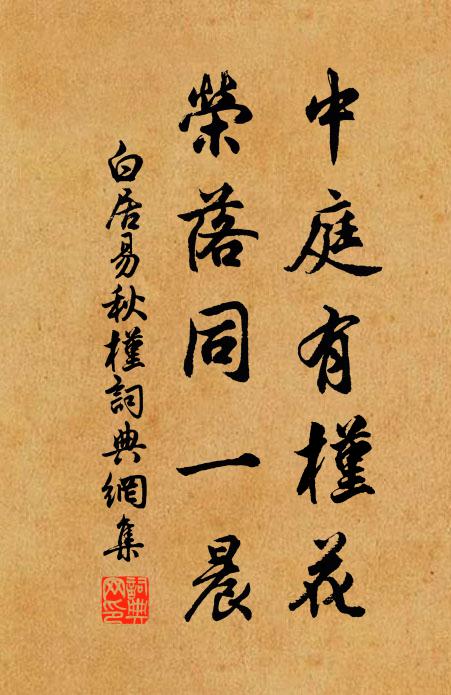 中庭有槿花
榮落同一晨
白居易秋槿詞典網集
詞典網印